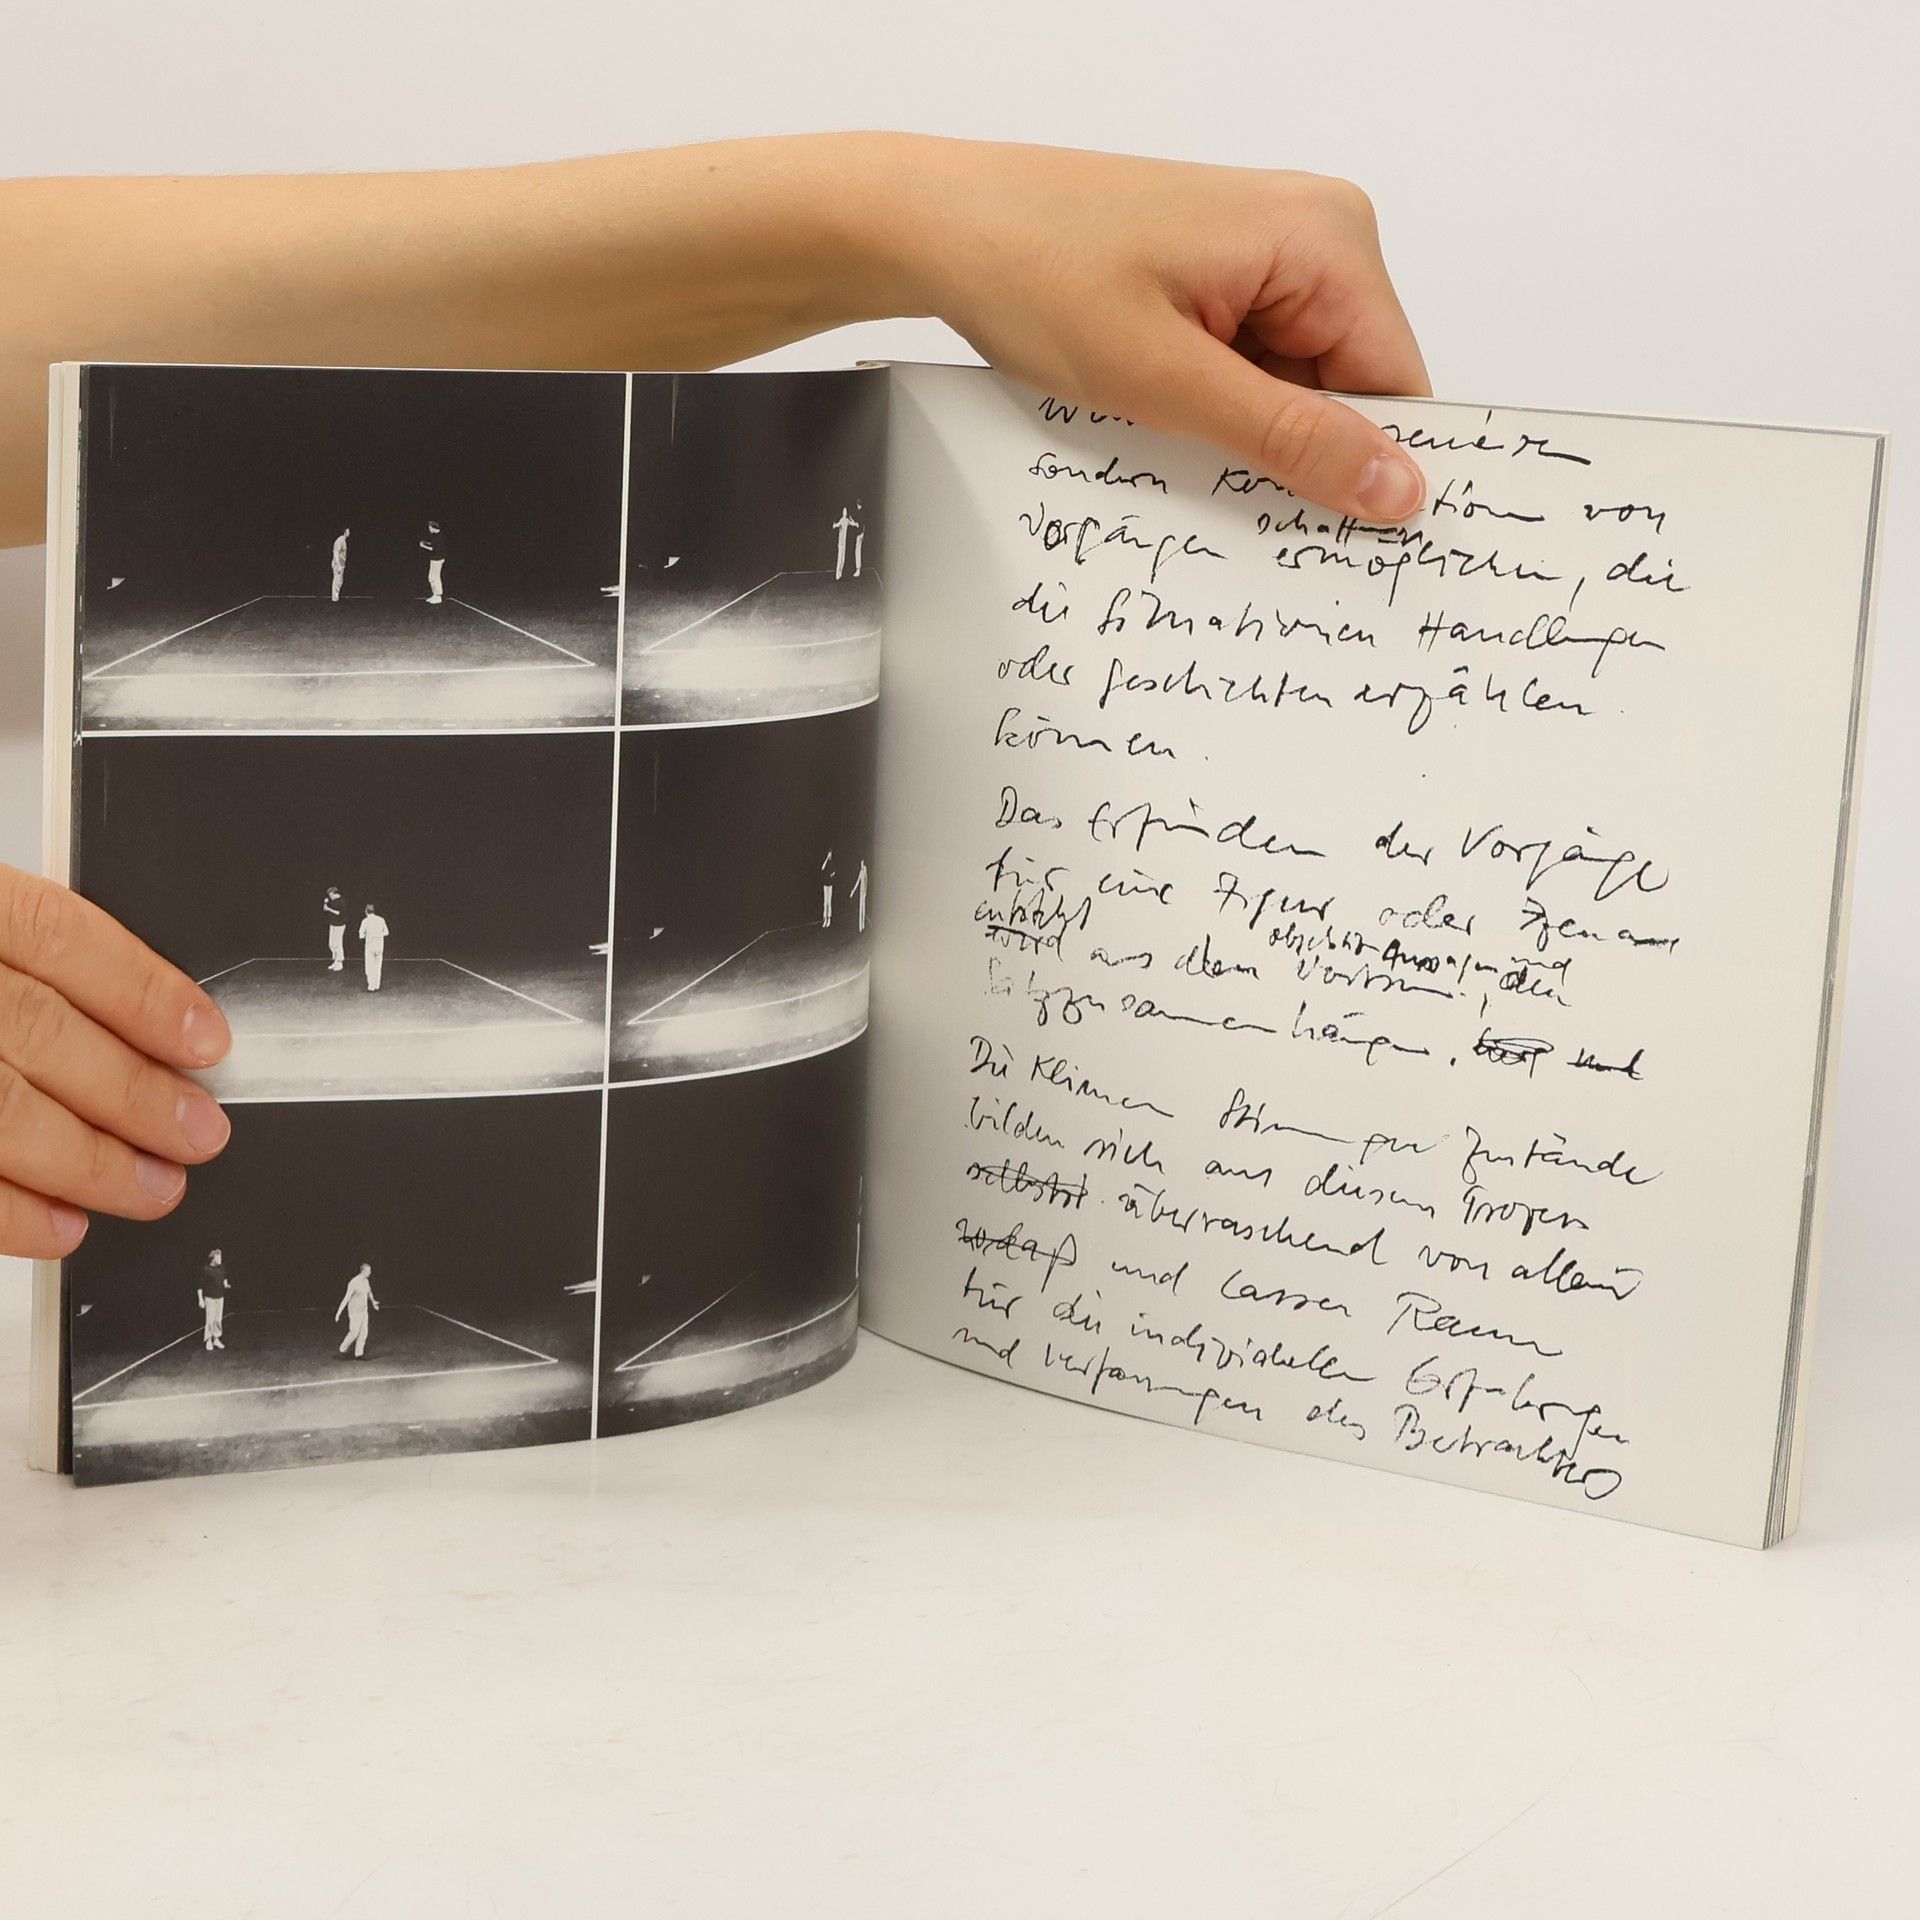 sondern von
schaffen
Vorgängen ermöglichen, die
die Situationen Handlungen
oder Geschichten erzählen
können.
Das Erfinden der Vorgänge
für eine Figur oder
entsteht
wird aus dem und den
Satzzusammenhängen. und
Die Klimen Stimmungen Zustände
bilden sich aus diesem
selbst überraschend von allein
sodaß und lassen Raum
für die individuellen Erfahrungen
und Verfassungen des Betrachters